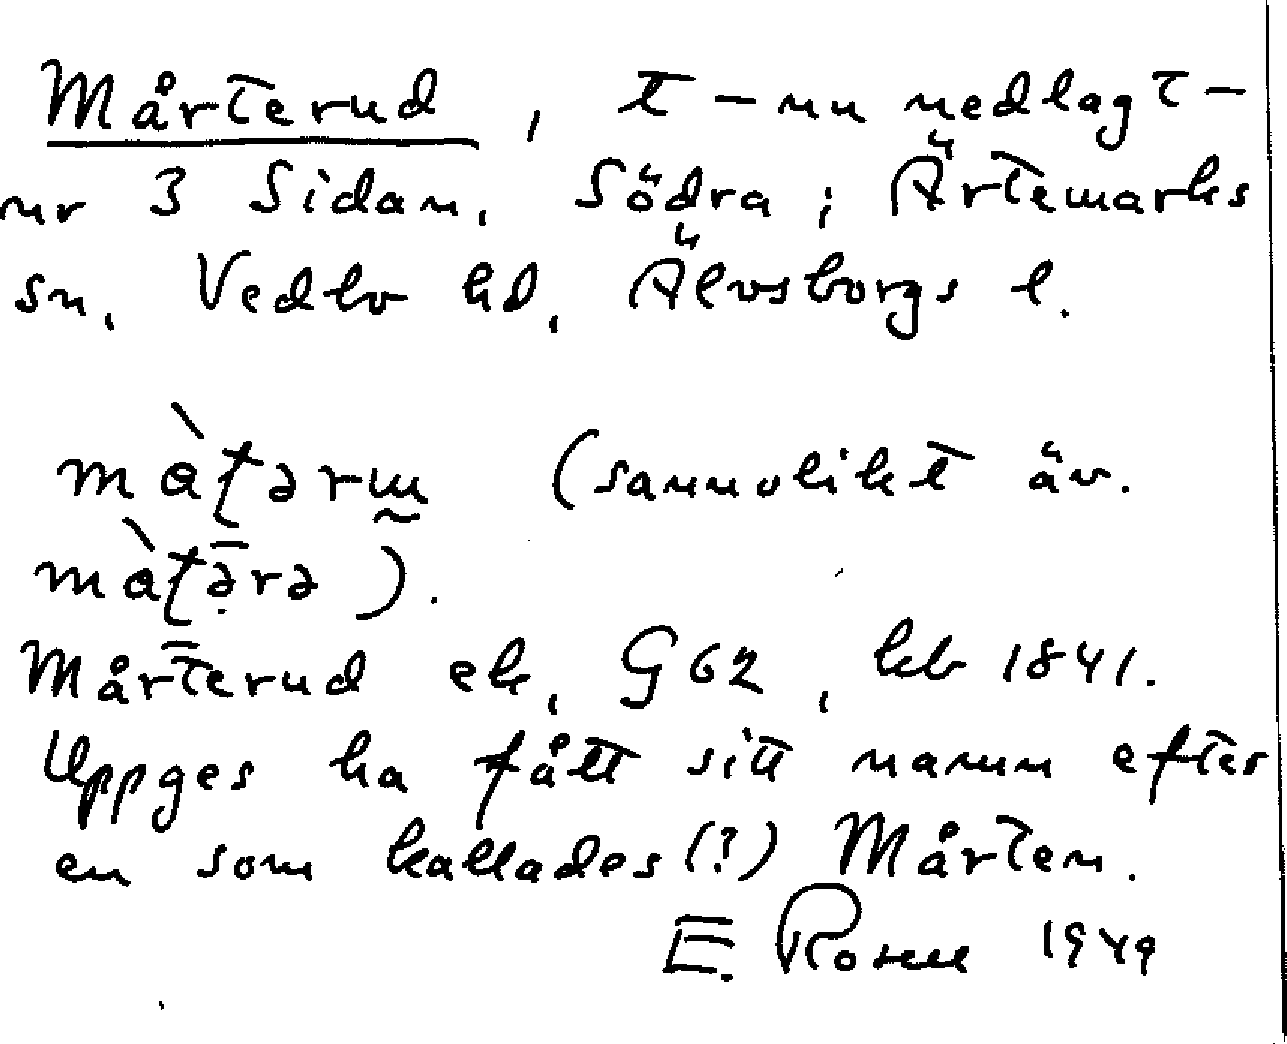 Mårterud, t – nu nedlagt –
nr 3 Sidan, Södra; Ärtemarks
sn, Vedbo hd, Älvsborgs l.
(sannolikt äv.
).
Mårterud ek, G62, hb 1841.
Uppges ha fått sitt namn efter
en som kallades (?) Mårten.
E. Rosell 1949